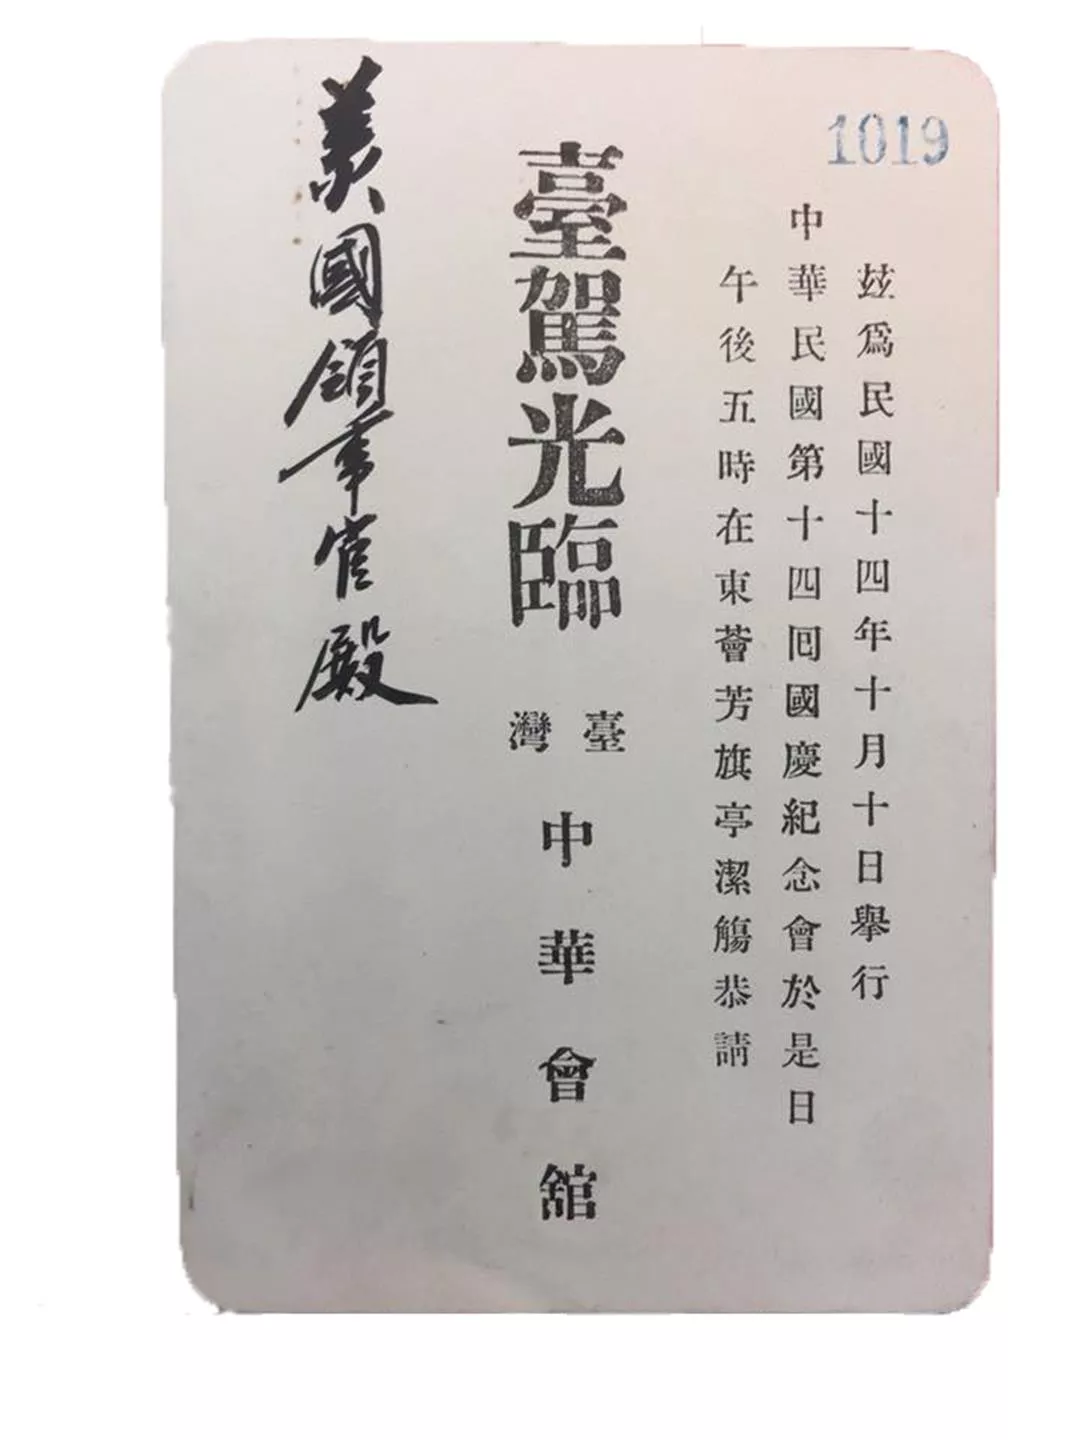 1019
茲爲民國十四年十月十日擧行
中華民國第十四囘國慶紀念會於是日
午後五時在東薈芳旗亭潔觴恭請
臺駕光臨
臺灣
中華會舘
美國領事官殿